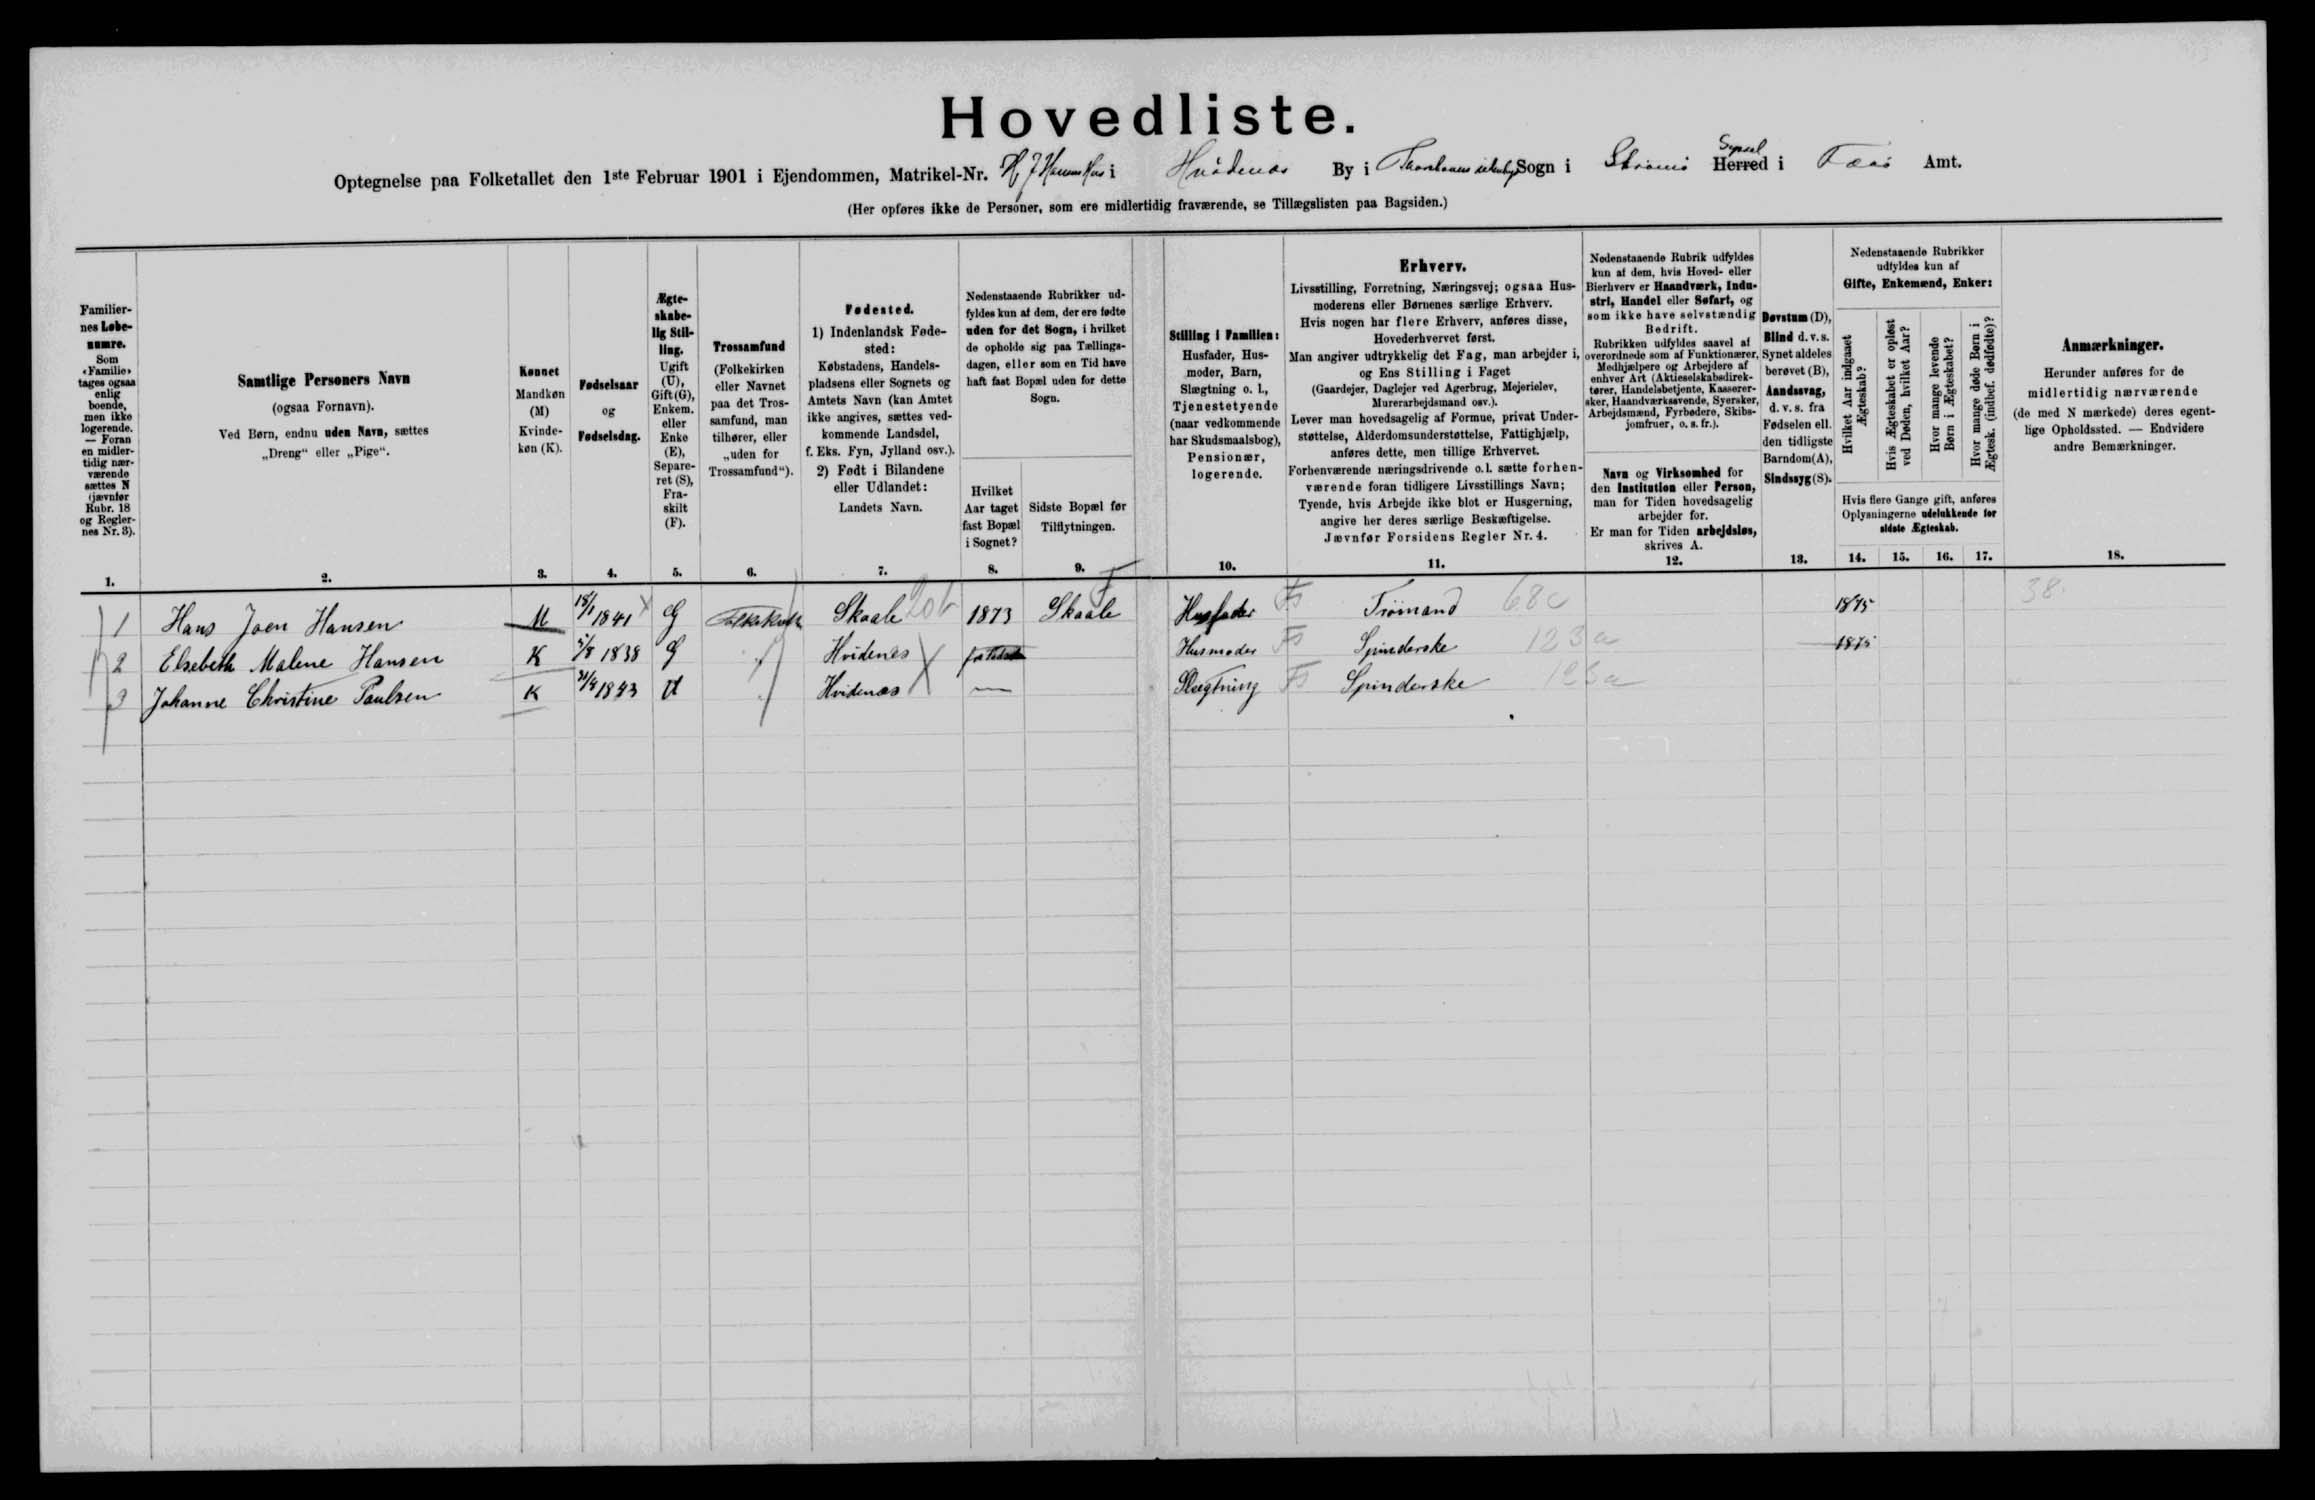 Hovedliste.
Optegnelse paa Folketallet den 1ste Februar 1901 i Ejendommen, Matrikel-Nr. H. J. Hansens Hus i Hvidenæs By i Thorshavns Sogn i Strömö Syssel Herred i Færö Amt.
(Her opføres ikke de Personer, som ere midlertidig fraværende, se Tillægslisten paa Bagsiden.)
Familier-
nes Løbe-
numre.
Som
«Familie»
tages ogsaa
enlig
boende,
men ikke
logerende.
— Foran
en midler-
tidig nær-
værende
sættes N
(jævnfør
Rubr. 18
og Regler-
nes Nr. 3).
1.
Samtlige Personers Navn
(ogsaa Fornavn).
Ved Børn, endnu uden Navn, sættes
„Dreng“ eller „Pige“.
2.
Kønnet
Mandkøn
(M)
Kvinde-
køn (K).
3.
Fødselsaar
og
Fødselsdag.
4.
Ægte-
skabe-
lig Stil-
ling.
Ugift
(U),
Gift (G),
Enkem.
eller
Enke
(E),
Separe-
ret (S),
Fra-
skilt
(F).
5.
Trossamfund
(Folkekirken
eller Navnet
paa det Tros-
samfund, man
tilhører, eller
„uden for
Trossamfund“).
6.
Fødested.
1) Indenlandsk Føde-
sted:
Købstadens, Handels-
pladsens eller Sognets og
Amtets Navn (kan Amtet
ikke angives, sættes ved-
kommende Landsdel,
f. Eks. Fyn, Jylland osv.).
2) Født i Bilandene
eller Udlandet:
Landets Navn.
7.
Nedenstaaende Rubrikker ud-
fyldes kun af dem, der ere fødte
uden for det Sogn, i hvilket
de opholde sig paa Tællings-
dagen, eller som en Tid have
haft fast Bopæl uden for dette
Sogn.
Hvilket
Aar taget
fast Bopæl
i Sognet?
8.
Sidste Bopæl før
Tilflytningen.
9.
Stilling i Familien:
Husfader, Hus-
moder, Barn,
Slægtning o. l.,
Tjenestetyende
(naar vedkommende
har Skudsmaalsbog),
Pensionær,
logerende.
10.
Erhverv.
Livsstilling, Forretning, Næringsvej; ogsaa Hus-
moderens eller Børnenes særlige Erhverv.
Hvis nogen har flere Erhverv, anføres disse,
Hovederhvervet først.
Man angiver udtrykkelig det Fag, man arbejder i,
og Ens Stilling i Faget
(Gaardejer, Daglejer ved Agerbrug, Mejerielev,
Murerarbejdsmand osv.).
Lever man hovedsagelig af Formue, privat Under-
støttelse, Alderdomsunderstøttelse, Fattighjælp,
anføres dette, men tillige Erhvervet.
Forhenværende næringsdrivende o. l. sætte forhen-
værende foran tidligere Livsstillings Navn;
Tyende, hvis Arbejde ikke blot er Husgerning,
angive her deres særlige Beskæftigelse.
Jævnfør Forsidens Regler Nr. 4.
11.
Nedenstaaende Rubrik udfyldes
kun af dem, hvis Hoved- eller
Bierhverv er Haandværk, Indu-
stri, Handel eller Søfart, og
som ikke have selvstændig
Bedrift.
Rubrikken udfyldes saavel af
overordnede som af Funktionærer,
Medhjælpere og Arbejdere af
enhver Art (Aktieselskabsdirek-
tører, Handelsbetjente, Kasserer-
sker, Haandværkssvende, Syersker,
Arbejdsmænd, Fyrbødere, Skibs-
jomfruer, o. s. fr.).
Navn og Virksomhed for
den Institution eller Person,
man for Tiden hovedsagelig
arbejder for.
Er man for Tiden arbejdsløs,
skrives A.
12.
Døvstum (D),
Blind d. v. s.
Synet aldeles
berøvet (B),
Aandssvag,
d. v. s. fra
Fødselen ell.
den tidligste
Barndom (A),
Sindssyg (S).
13.
Nedenstaaende Rubrikker
udfyldes kun af
Gifte, Enkemænd, Enker:
Hvilket Aar indgaaet
Ægteskab?
Hvis Ægteskabet er opløst
ved Døden, hvilket Aar?
Hvor mange levende
Børn i Ægteskabet?
Hvor mange døde Børn i
Ægtesk. (indbef. dødfødte)?
Hvis flere Gange gift, anføres
Oplysningerne udelukkende for
sidste Ægteskab.
14. 15. 16. 17.
Anmærkninger.
Herunder anføres for de
midlertidig nærværende
(de med N mærkede) deres egent-
lige Opholdssted. — Endvidere
andre Bemærkninger.
18.
1 Hans Joen Hansen M 18/1 1841 G Folkekirk Skaale 20b 1873 Skaale F Husfader Fs Tröimand 68c 1875 38.
2 Elsebeth Malene Hansen K 5/8 1838 G Hvidenæs Husmoder Fs Spinderske 123a 1875
3 Johanne Christine Paulsen K 21/4 1843 U Hvidenæs — Slægtning Fs Spinderske 123a